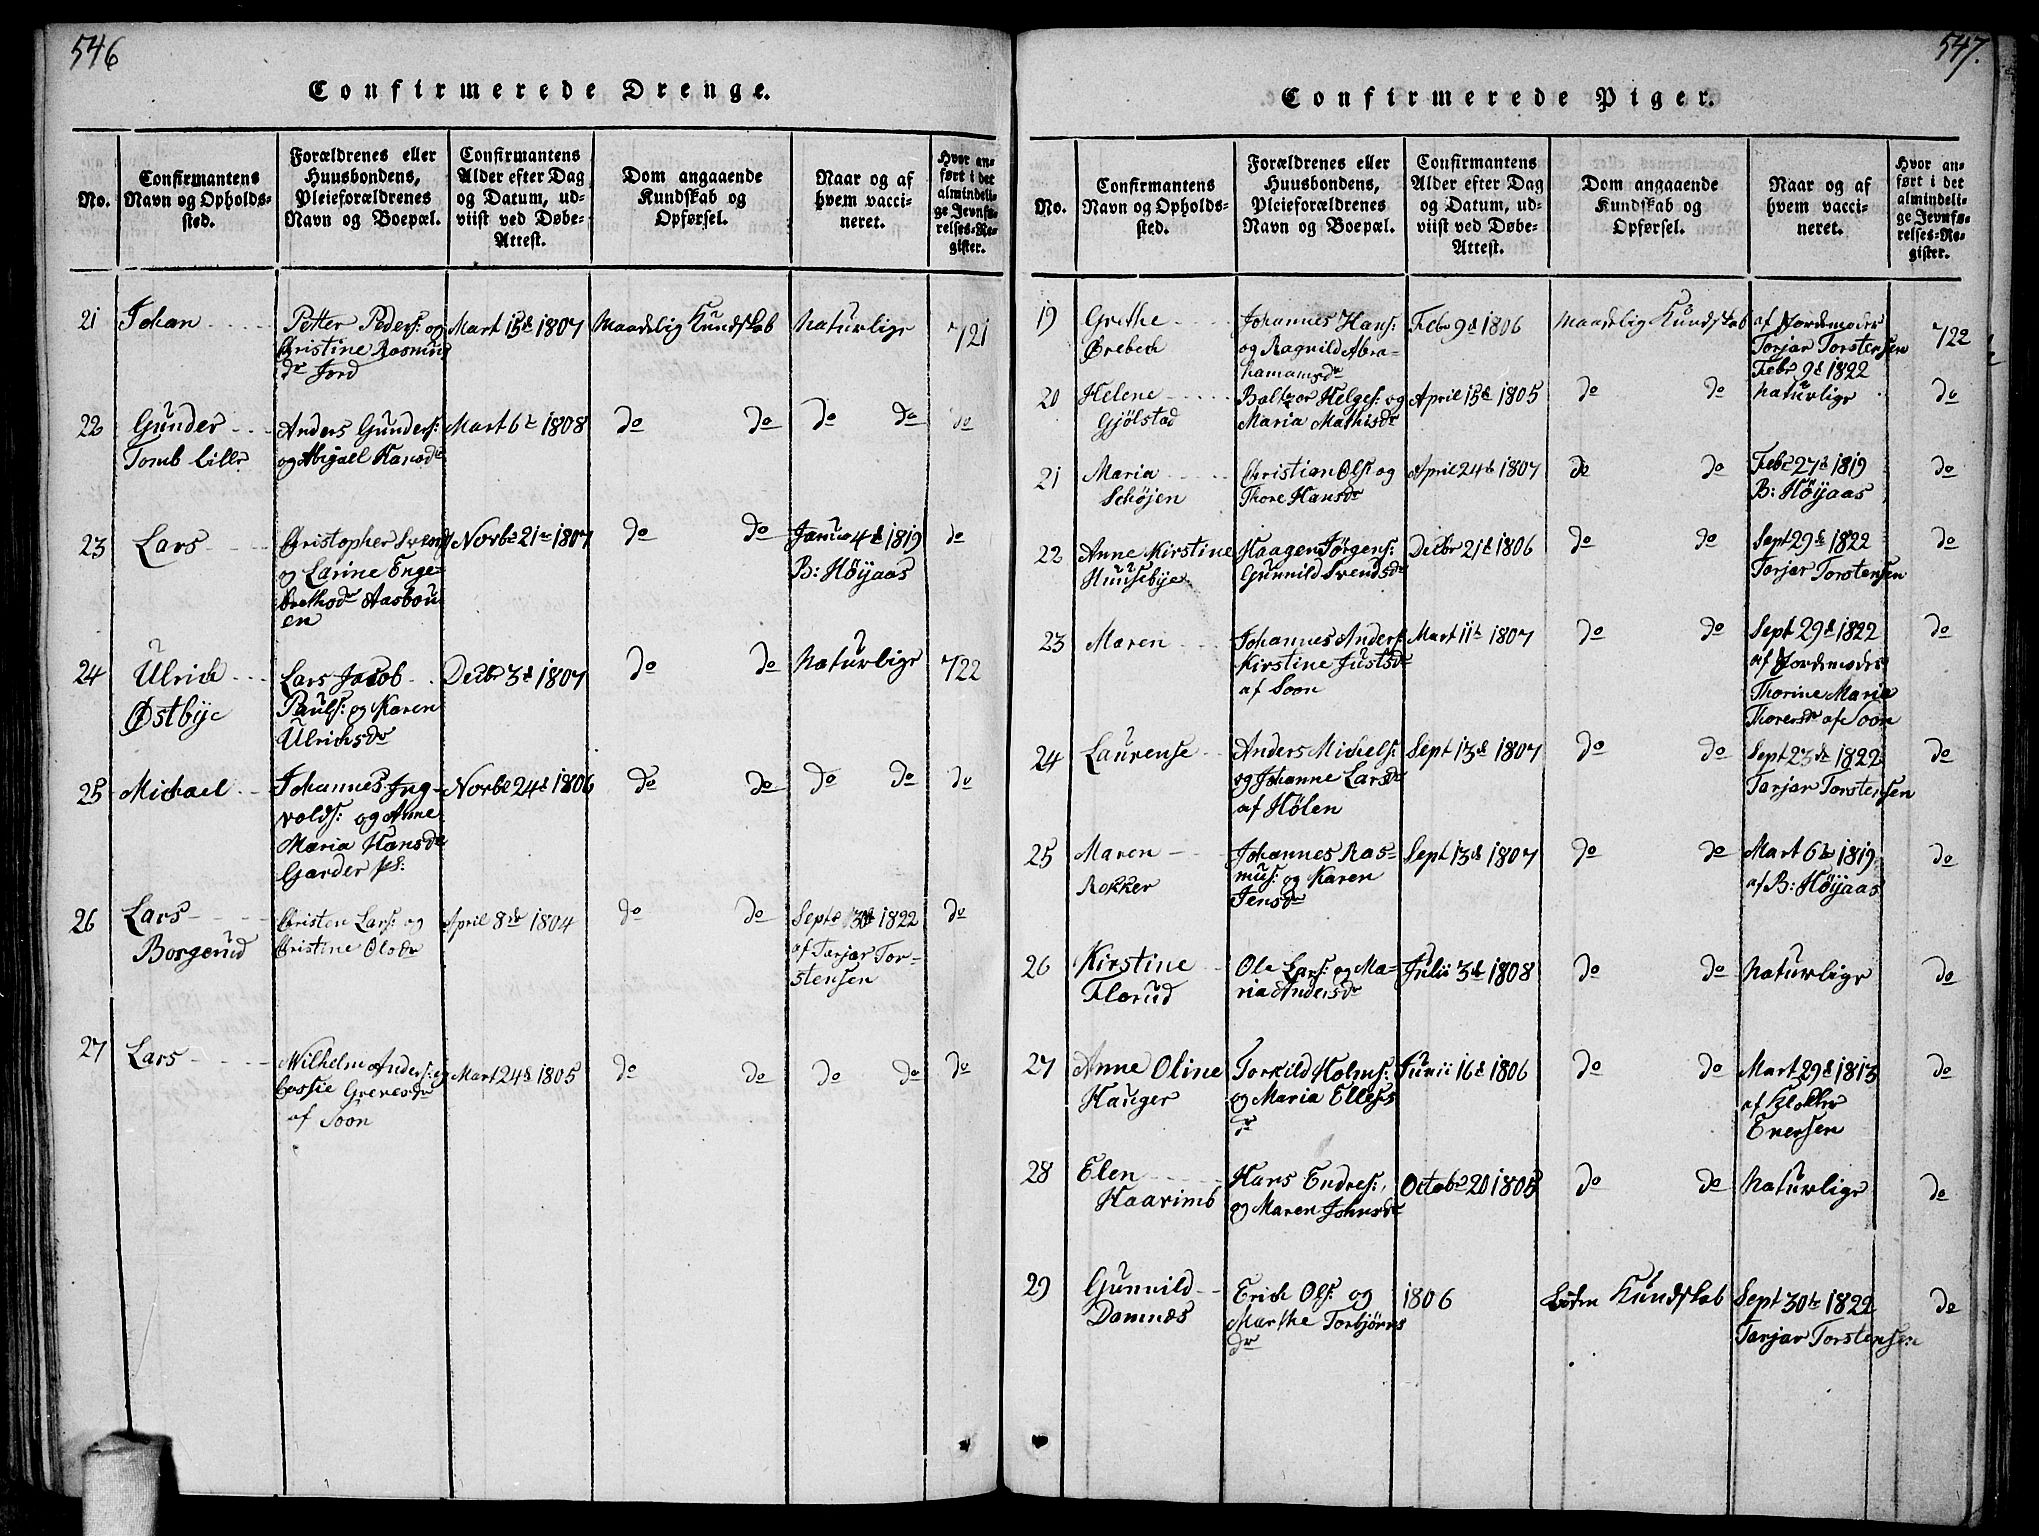 546
Confirmerede Drenge.
No.
Confirmantens
Navn og Opholds-
sted.
Forældrenes eller
Huusbondens,
Pleieforældrenes
Navn og Boepæl.
Confirmantens
Alder efter Dag
og Datum, ud-
viist ved Døbe-
Attest.
Dom angaaende
Kundskab og
Opførsel.
Naar og af
hvem vacci-
neret.
Hvor an-
ført i det
almindeli-
ge Jevnfø-
relses-Re-
gister.
21
Johan
Petter Peders: og
Christine Rasmus
dr Jord
Mart 15d 1807
Maadelig Kundskab
Naturlige
721
22
Gunder
Tomb lille
Anders Gunders:
og Abigael Hansdr
Mart 6t 1808
do do
do do
do
23
Lars
Christopher Svends
og Larine Enge-
brethsdr Aasbou
en
Novbr 21 1807
do do
Janu 4d 1819
B: Höyaas
do
24
Ulrich
Østbye
Lars Jacob
Pauls: og Karen
Ulrichsdr
Decbr 3d 1807
do do
Naturlige
722
25
Michael
Johannes Ing-
volds: og Anne
Maria Hansdr
Garder ps:
Novbr 24d 1806
do do
do do
do
26
Lars
Borgerud
Christen Lars: og
Christine Olsdr
April 8de 1804
do do
Septbr 30t 1822
af Tarjar Tor-
stensen
do
27
Lars
Wilhelm Anders: og
Grevesdr
af Soon
Mart 24d 1805
do do
do do
do
547.
Confirmerede Piger.
No.
Confirmantens
Navn og Opholds-
sted.
Forældrenes eller
Huusbondens,
Pleieforældrenes
Navn og Boepæl.
Confirmantens
Alder efter Dag
og Datum, ud-
viist ved Døbe-
Attest.
Dom angaaende
Kundskab og
Opførsel.
Naar og af
hvem vacci-
neret.
Hvor an-
ført i det
almindeli-
ge Jevnfø-
relses-Re-
gister.
19
Grethe
Ørebech
Johannes Hans:
og Ragnild Abra-
hamamsdr
Febr 9d 1806
Maadelig Kundskab
af Jordemoder
Torjar Torstensen
Febr 9d 1822
722
20
Helene
Gjölstad
Baltzor Helges: og
Maria Mathisdr
April 15d 1805
do do
Naturlige
do
21
Maria
Schöjen
Christian Ols: og
Thore Hansdr
April 24d 1807
do do
Febr 27d 1819
B: Höyaas
do
22
Anne Kirstine
Huusebye
Haagen Jörgens:
Gunnild Svendsdr
Decbr 21d 1806
do do
Sept 29d 1822
Tarjar Torstensen
do
23
Maren
Johannes Anders:
Kirstine Justsdr
af Soon
Mart 11t 1807
do do
Sept 29d 1822
af Jordemoder
Thorine Marie
Thoresdr af Soon
do
24
Laurense
Anders Michels:
og Johanne Larsdr
af Hölen
Sept 13d 1807
do do
Sept 23d 1822
Tarjar Torstensen
do
25
Maren
Rokker
Johannes Ras-
mus: og Karen
Jensdr
Sept 13d 1807
do do
Mart 6te 1819
af B: Höyaas
do
26
Kirstine
Flerud
Ole Lars: og Ma-
ria Andersdr
Julii 3d 1808
do do
Naturlige
do
27
Anne Oline
Hauger
Torkild Holms:
og Maria Ellefs
dr
Junii 16d 1806
do do
Mart 29d 1813
af Klokker
Evensen
do
28
Elen
Haarimb
Hans Endres:
og Maren Johnsdr
Octobr 20 1805
do do
Naturlige
do
29
Gunnild
Damnæs
Erich Ols: og
Marthe Torbjörns
dr
1806
Liden Kundskab
Sept 30te 1822
Tarjar Torstensen
do